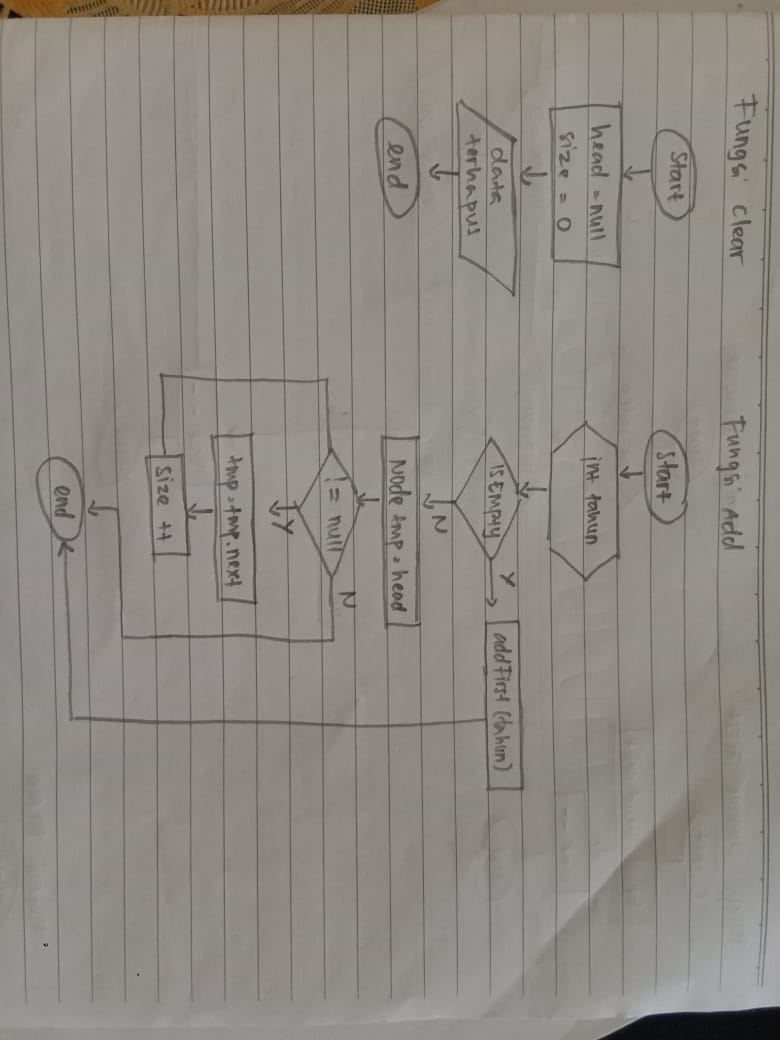 Fungsi Clear
Start
head = null
size = 0
data
terhapus
end
Fungsi Add
Start
int tahun
IsEmpty
Y
addFirst (tahun)
N
Node tmp = head
!= null
N
Y
tmp = tmp.next
size ++
end